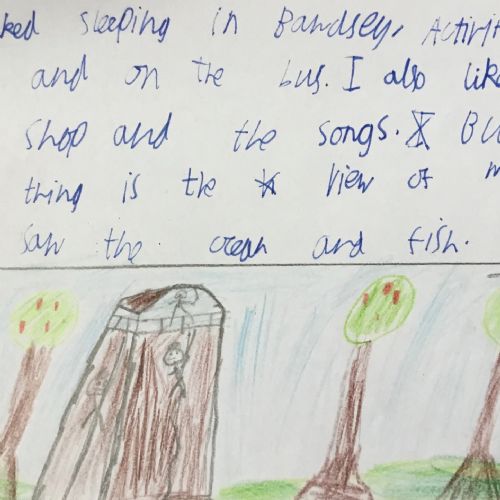 ked sleeping in Bandsey, Activit
and on the bus. I also like
shop and the songs. Bu
thing is the view of m
saw the ocean and fish.